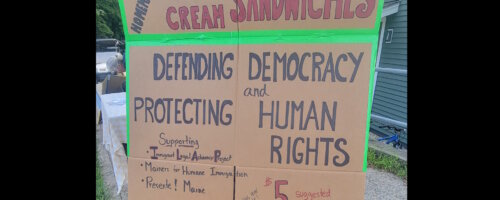 CREAM SANDWICHES
DEFENDING DEMOCRACY
and
PROTECTING HUMAN
RIGHTS
Supporting
• Immigrant Legal Advocacy Project
• Mainers for Humane Immigration
• Presente! Maine
$5 suggested